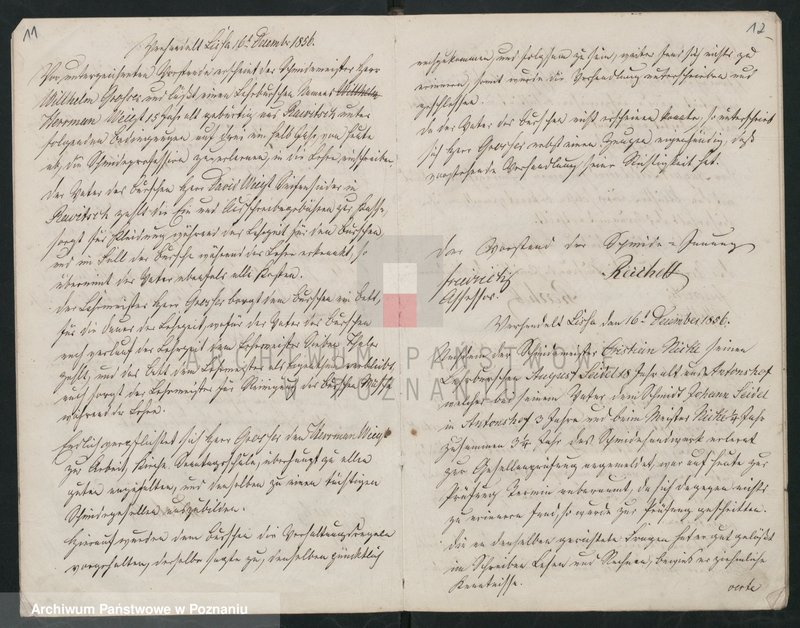 11
Verhandelt Lissa 16t Dezember 1856.
Vor unterzeichneten Vorstande erscheint der Schmiedemeister Herr
Wilhelm Grosser, und läßt einen Lehrburschen Namens Wilhelm
Herrman Weigt 15 Jahr alt gebürtig aus Rawitsch unter
folgenden Bedingungen auf drei ein halb Jahr, von heute
ab, die Schmiedeprofession zu erlernen, in die Lehre einschreiben
Der Vater des Burschen Herr David Weigt Seifensieder in
Rawitsch zahlt die Ein und Ausschreibegebühren zur Kasse,
sorgt für Kleidung während der Lehrzeit für den Burschen
und im Fall der Bursche während der Lehre erkrankt, so
übernimmt der Vater ebenfals alle Kosten.
Der Lehrmeister Herr Grosser besorgt dem Burschen ein Bett,
für die Dauer der Lehrzeit, wofür der Vater des Burschen
nach Verlauf der Lehrzeit dem Lehrmeister Sieben Thaler
zahlt, und das Bett dem Lehrmeister als Eigenthum verbleibt,
auch sorgt der Lehrmeister für Reinigung der Burschen Wäsche
während der Lehre.
Endlich verpflichtet sich Herr Grosser den Herrman Weigt
zur Arbeit, Kirche, Sonntagsschule, überhaupt zu allen
guten anzuhalten, und denselben zu einen tüchtigen
Schmiedegesellen auszubilden.
Hierauf wurden dem Burschen die Verhaltungsregeln
vorgehalten, derselbe sagte zu, denselben pünktlich
12
nachzukommen, und folgsam zu sein, weiter fand sich nichts zu
erinnern, somit wurde die Verhandlung unterschrieben und
geschlossen.
Da der Vater des Burschen nicht erscheinen konnte, so unterschreibt
sich Herr Grosser nebst einen Zeugen eigenhändig, daß
vorstehende Verhandlung seine Richtigkeit hat.
Der Vorstand der Schmiede-Innung
Reichelt
Assessor.
Verhandelt Lissa den 16t Dezember 1856.
der Schmiedemeister Cristian Nicke seinen
Lehrburschen August Seidel 18 Jahr alt aus Antonshof
welcher bei seinem Vater dem Schmidt Johann Seidel
in Antonshof 3 Jahre und beim Meister Nicke ¾ Jahr
zusammen 3¾ Jahr das Schmiedehandwerk erlernt
zur Gesellenprüfung angemeldet, war auf heute zur
Prüfung Termin anberaumt, da sich dagegen nichts
zu erinnern fand, so wurde zur Prüfung geschritten.
Die an denselben gerichtete Fragen hat er gut gelößt
im Schreiben Lesen und Rechnen, besitzt er ziehmliche
Kenntnisse.
ARCHIWUM PAŃSTWOWE
W POZNANIU
Archiwum Państwowe w Poznaniu